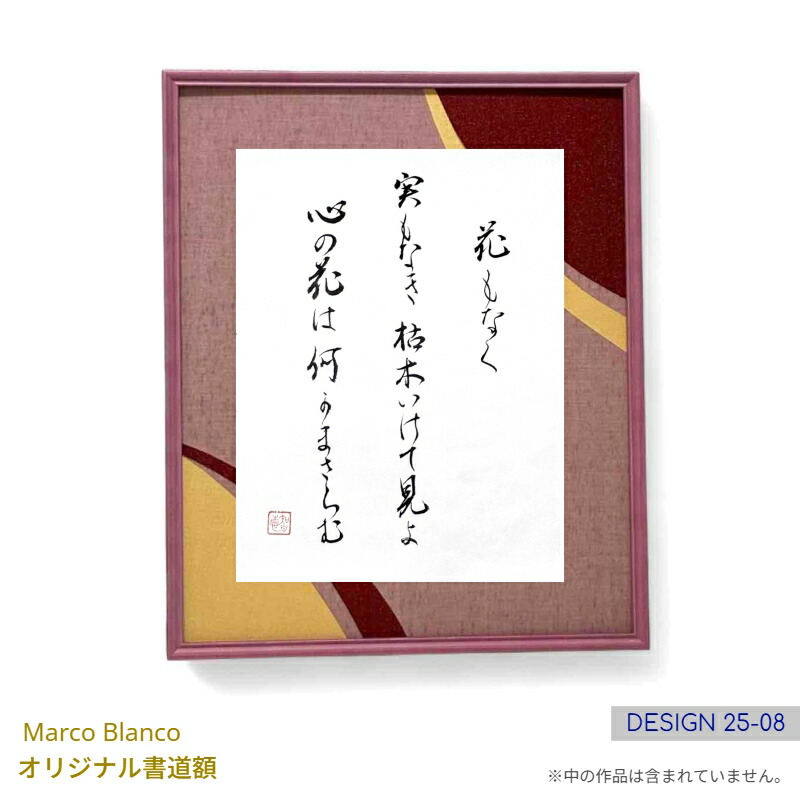 花もなく
実もなき枯木いけて見よ
心の花は何かまさらむ
Marco Blanco
オリジナル書道額
DESIGN 25-08
※中の作品は含まれていません。